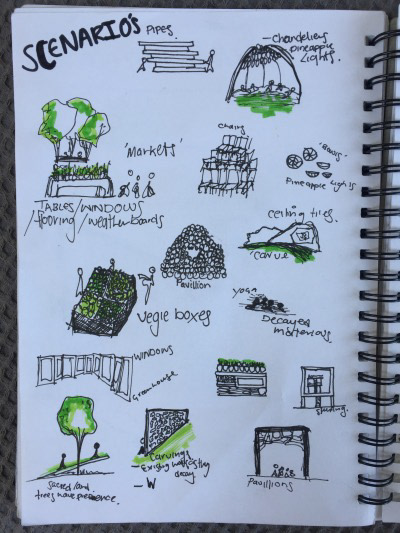 SCENARIO'S
PIPES
- Chandeliers
pineapple
Lights.
'Markets'
chairs
'Bowls'
Pineapple Lights
TABLES/WINDOWS
/flooring/weatherboards
ceiling tiles.
carve
Pavillion
Vegie boxes
yoga
Decayed
materials
WINDOWS
Greenhouse
sacred land.
trees have presence.
Carvings
- Existing
decay
- W
Pavillions